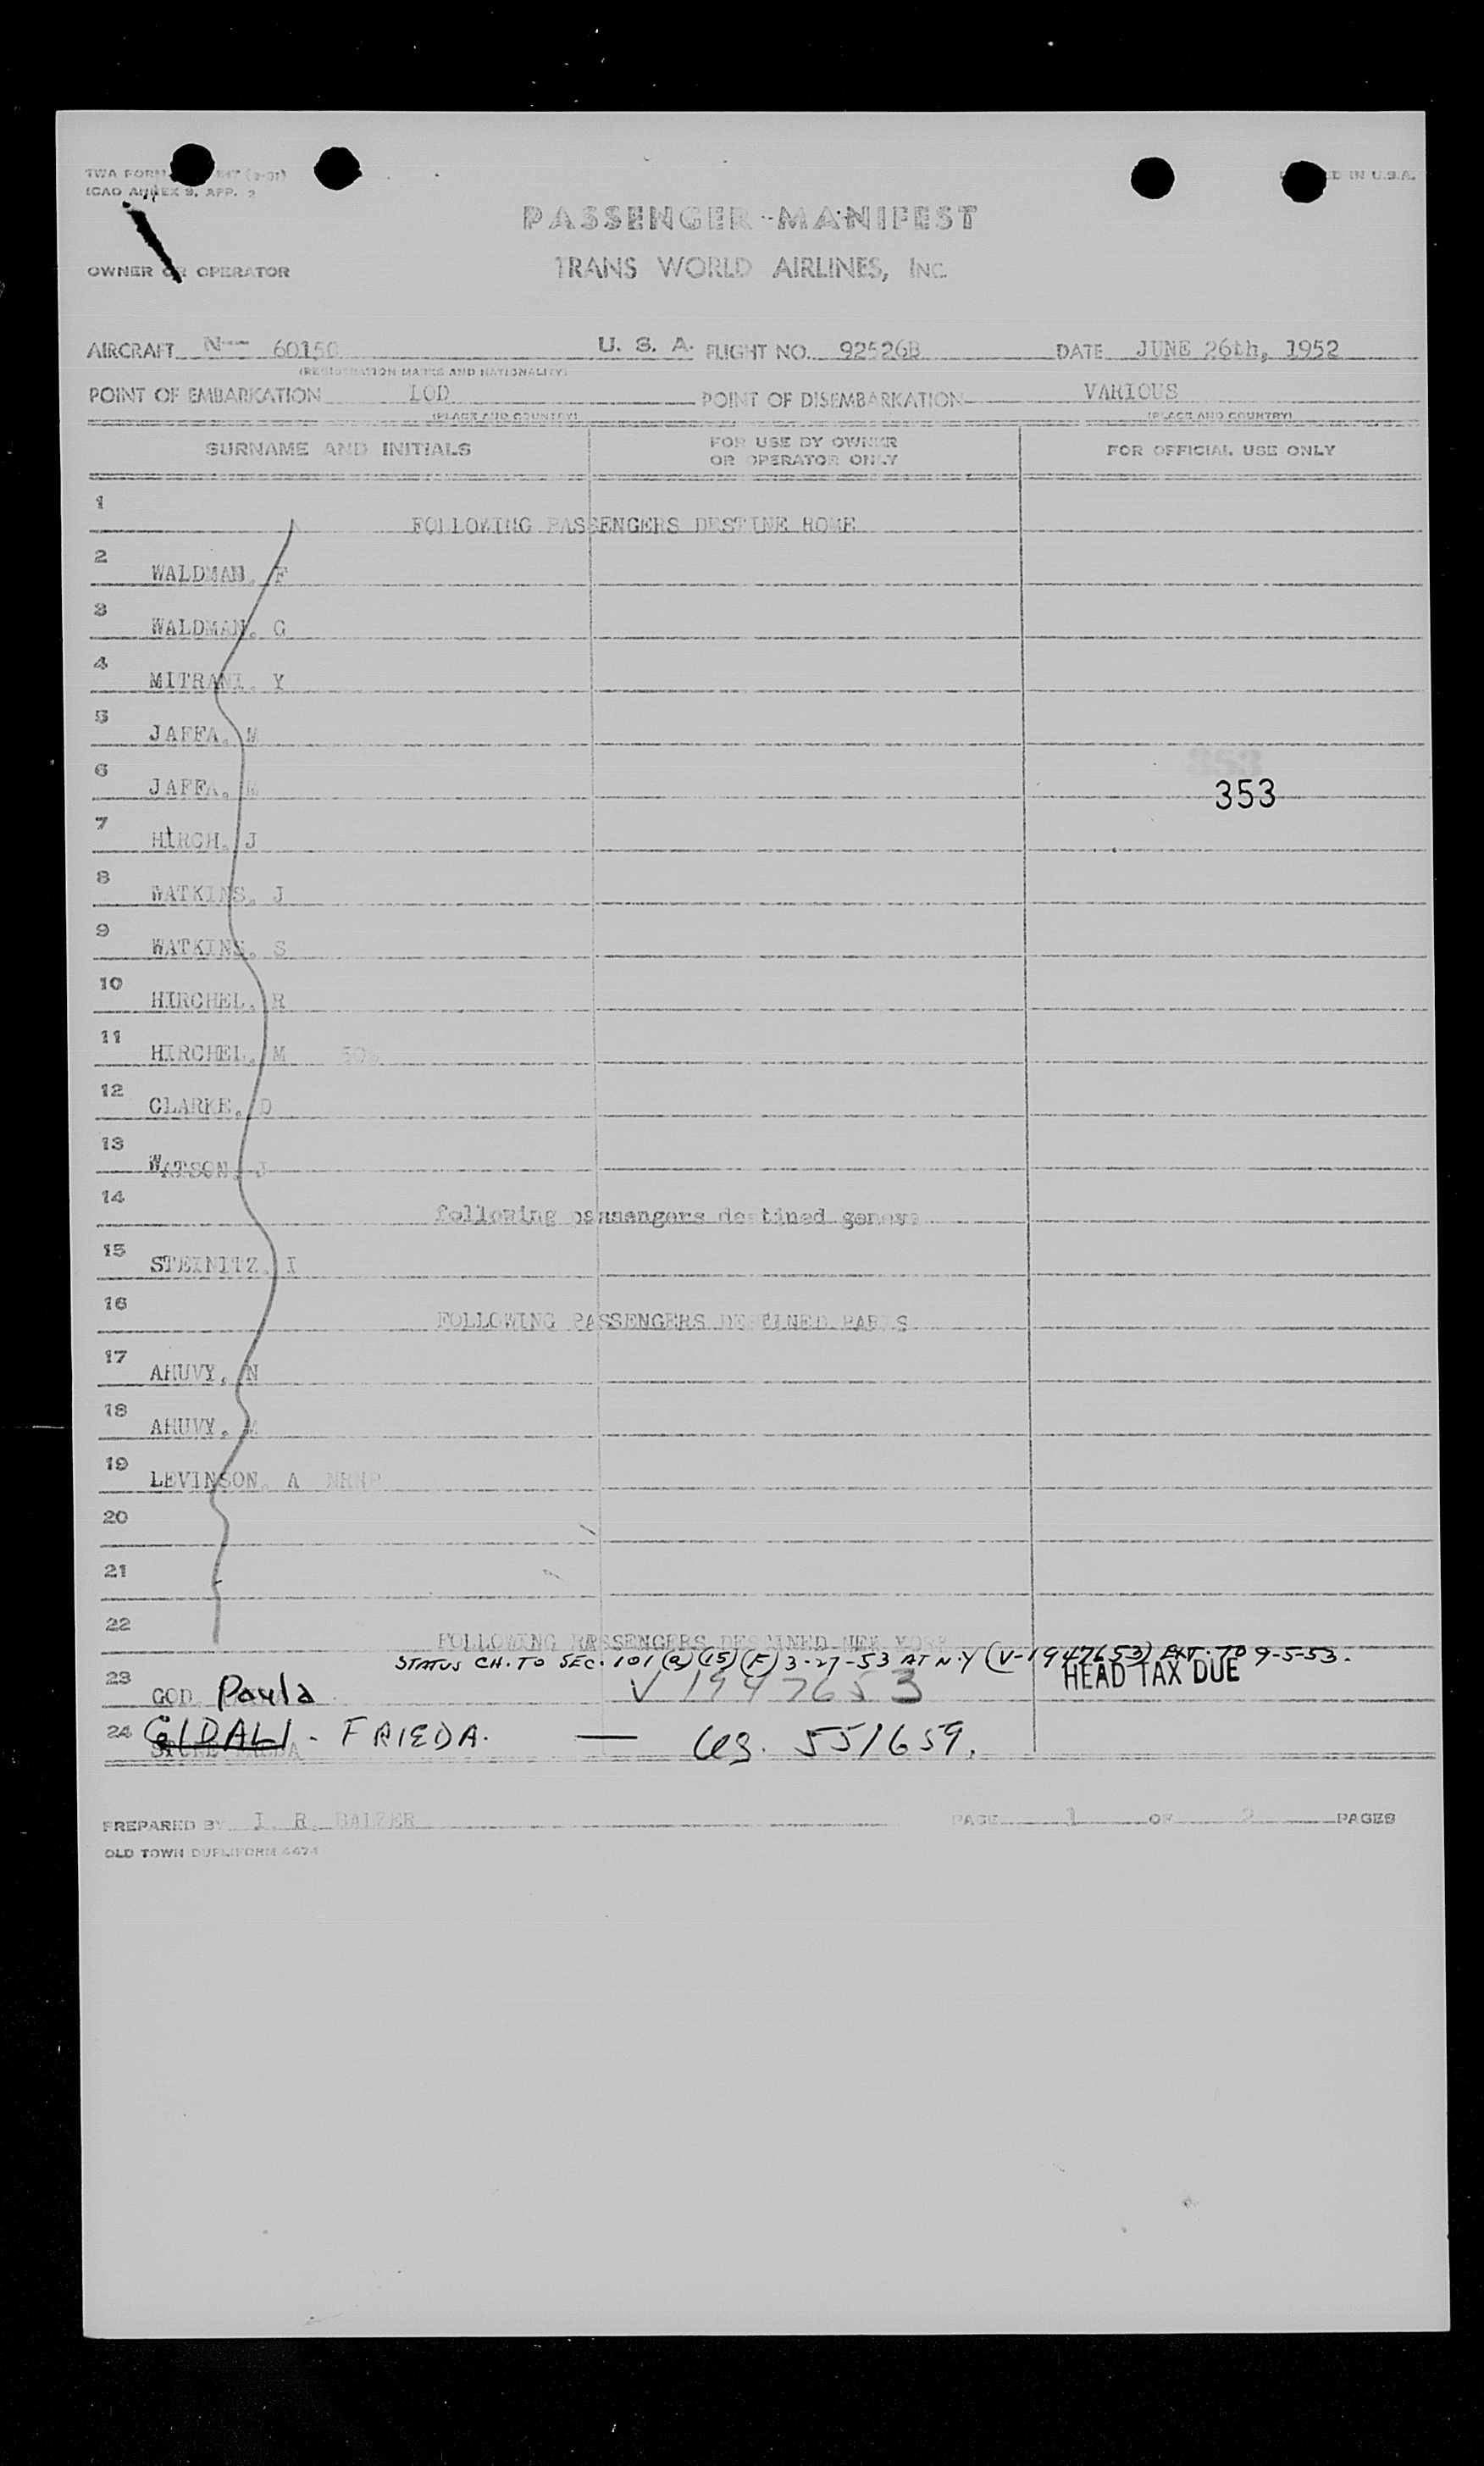 TWA FORM
ICAO ANNEX 9, APP. 2
IN U.S.A.
PASSENGER MANIFEST
OWNER OR OPERATOR TRANS WORLD AIRLINES, INC.
AIRCRAFT N-- 60150 U. S. A. FLIGHT NO. 92526B DATE JUNE 26th, 1952
(REGISTRATION MARKS AND NATIONALITY)
POINT OF EMBARKATION LOD POINT OF DISEMBARKATION VARIOUS
(PLACE AND COUNTRY) (PLACE AND COUNTRY)
SURNAME AND INITIALS FOR USE BY OWNER OR OPERATOR ONLY FOR OFFICIAL USE ONLY
1 FOLLOWING PASSENGERS DESTINE ROME
2 WALDMAN, F
3 WALDMAN, G
4 MITRANI, Y
5 JAFFA, M
6 JAFFA, 353
7 HIRCH, J
8 WATKINS, J
9 WATKINS, S
10 HIRCHEL, R
11 HIRCHEL, M
12 CLARKE, D
13 WATSON, J
14 following passangers destined geneva
15 STEINITZ, I
16 FOLLOWING PASSENGERS DESTINED PARIS
17 AHUVY, N
18 AHUVY,
19 LEVINSON, A
20
21
22 FOLLOWING PASSENGERS DESTINED NEW YORK
STATUS CH. TO SEC. 101 (a) (15) (F) 3-27-53 AT N.Y (V-1947653) EXT. TO 9-5-53.
23 GOD, Paula V 1947653 HEAD TAX DUE
24 GIDALI - FRIEDA. — 551659.
PREPARED BY I. R. BALZER PAGE 1 OF 2 PAGES
OLD TOWN DUPLIFORM 4474